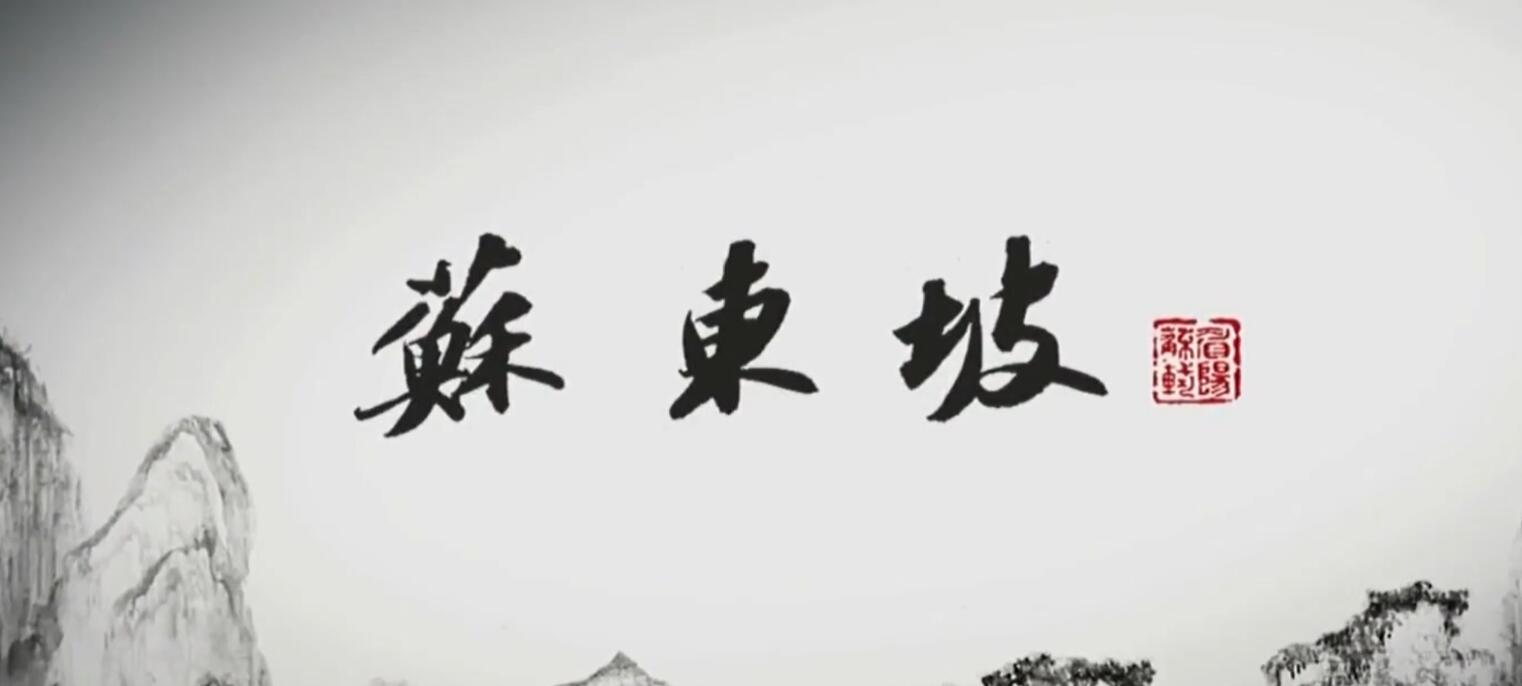 蘇東坡
眉陽蘇軾